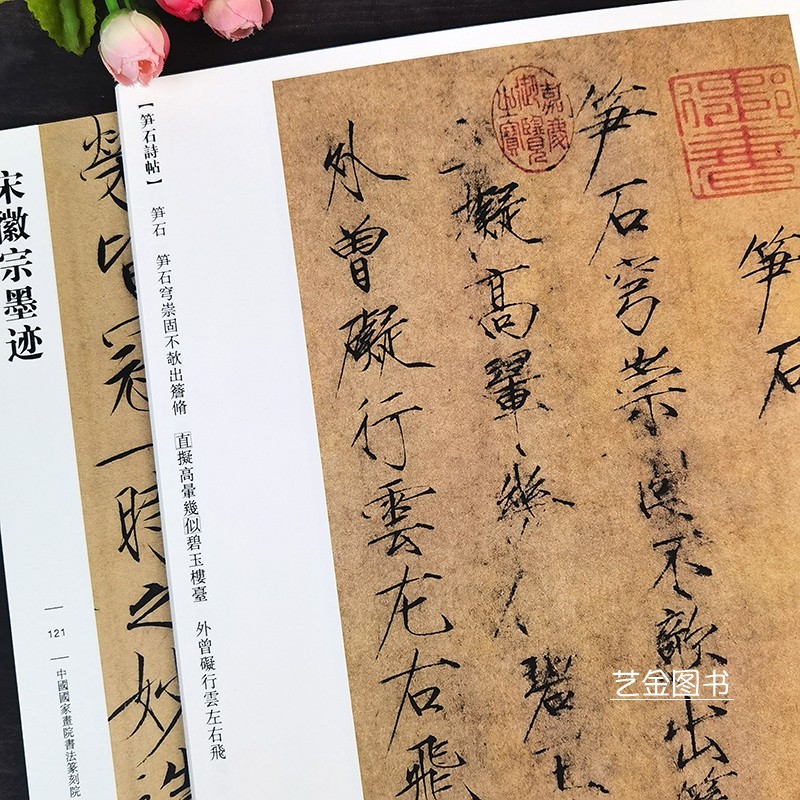 笋石
笋石穹崇固不欹出簪
擬高翬幾碧玉
外曾礙行雲左右飛
嘉慶御覽之寶
【笋石詩帖】
笋石 笋石穹崇固不欹出簪脩 直擬高暈幾似碧玉樓臺 外曾礙行雲左右飛
皆冠一時之妙
宋徽宗墨迹
121
中國國家畫院書法篆刻院
艺金图书